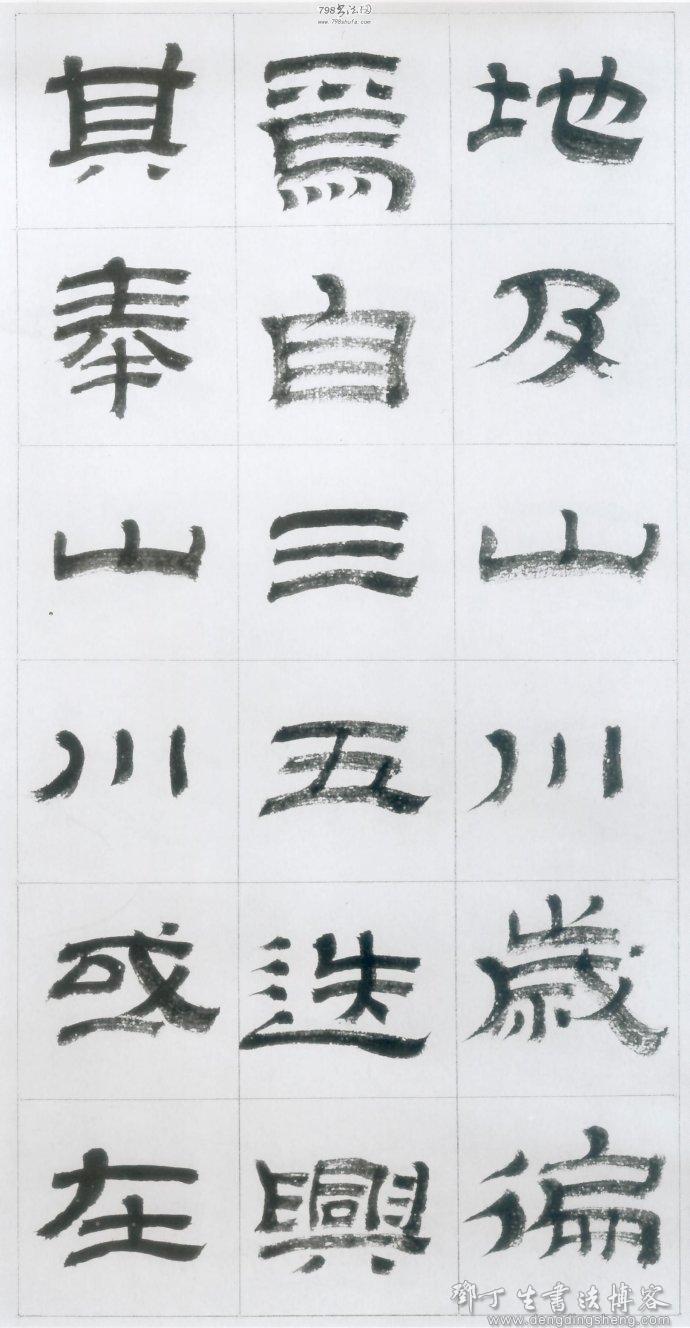 798书法网
www.798shufa.com
地及山川歲徧
焉自三五迭興
其奉山川或在
邓丁生書法博客
www.dengdingsheng.com